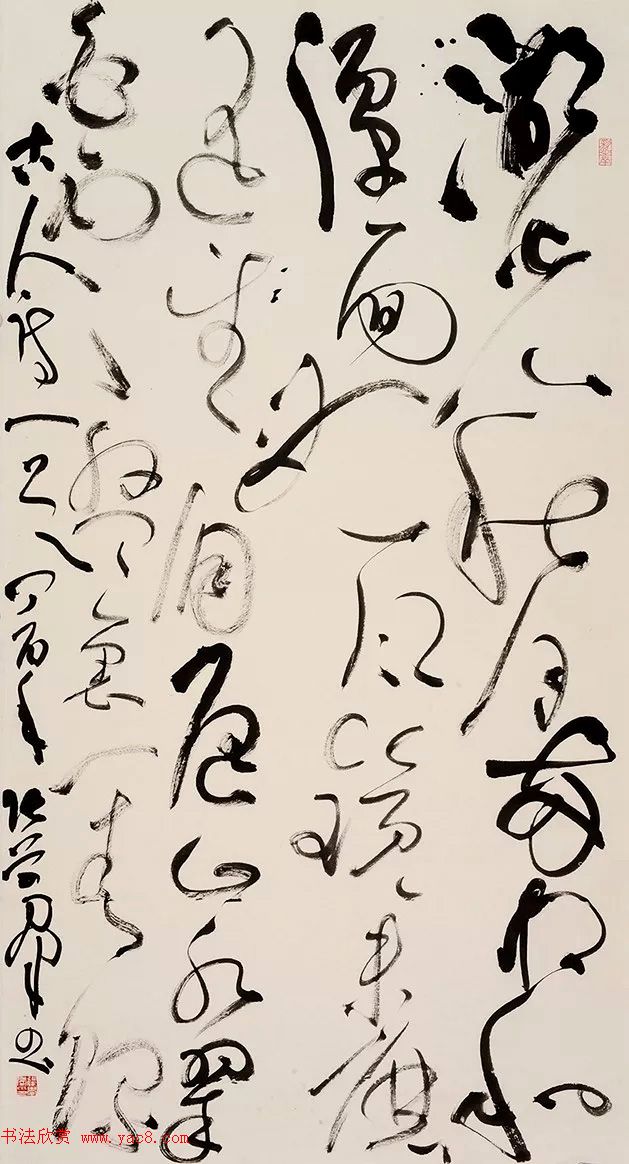 湖光秋月两相和
潭面无风镜未磨
遥望洞庭山水翠
白银盘里一青螺
古人诗一首 丁酉年
书法欣赏 www.yac8.com